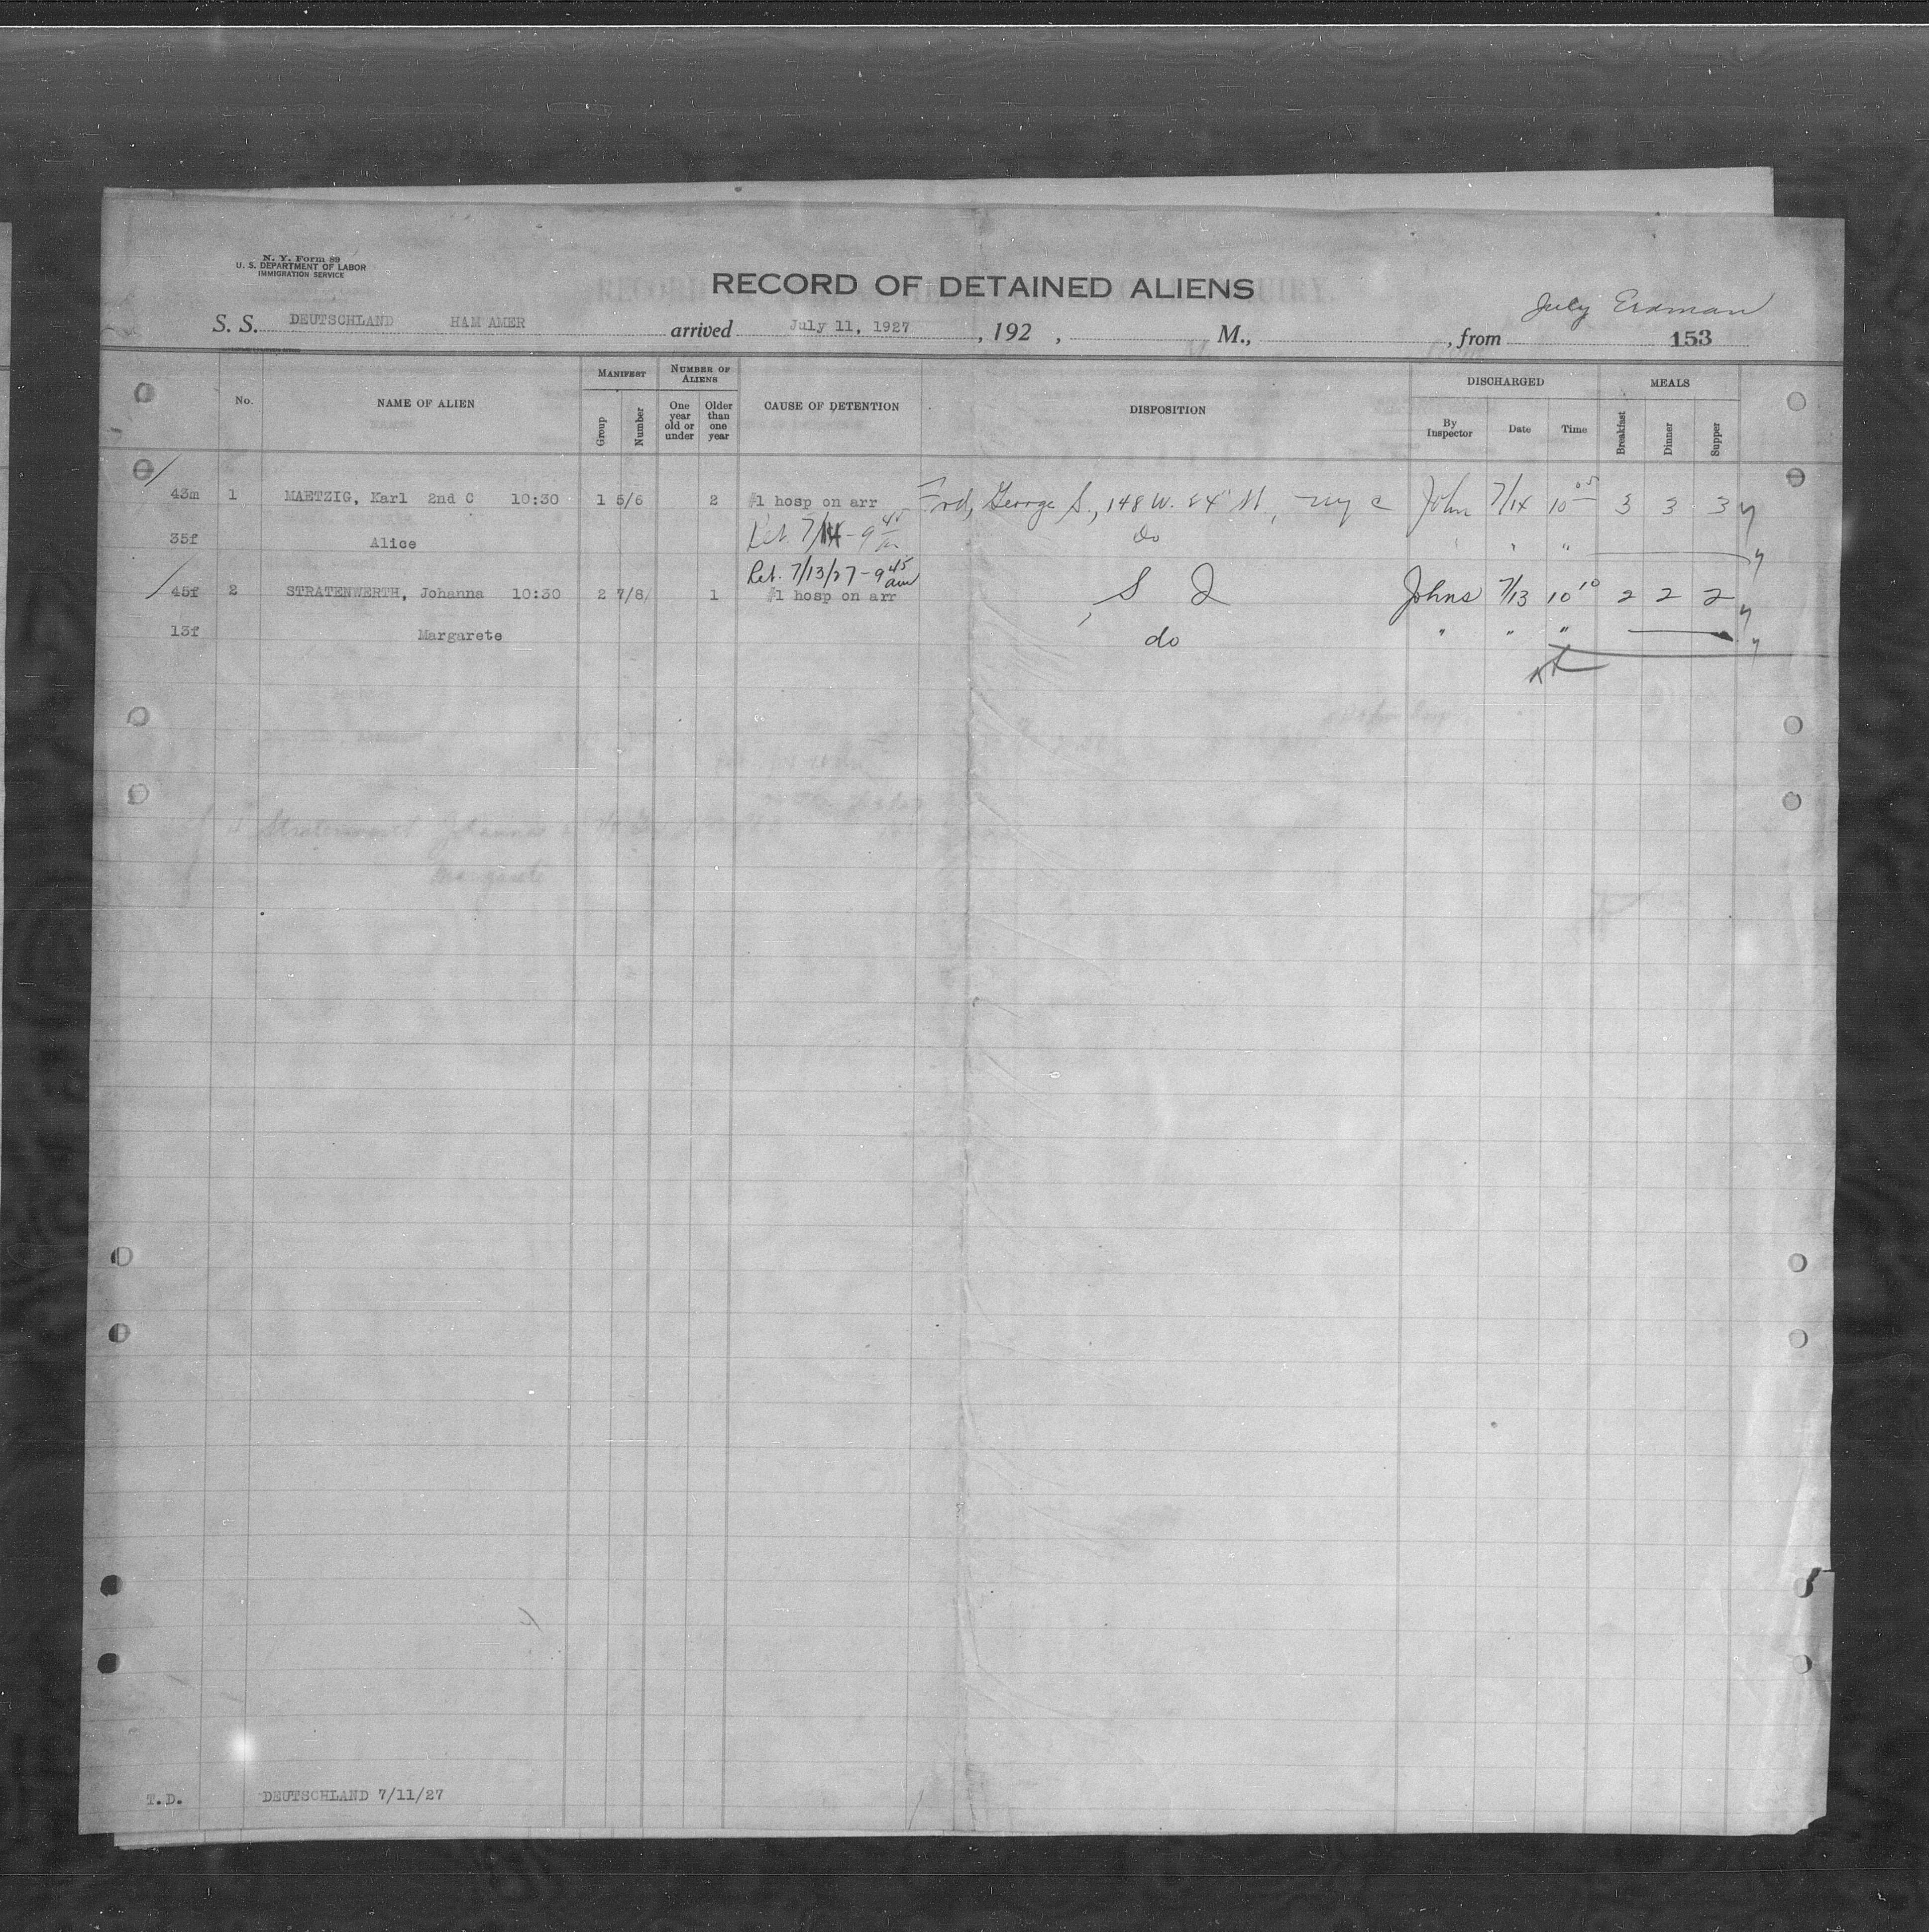 N. Y. Form 89
U. S. DEPARTMENT OF LABOR
IMMIGRATION SERVICE
RECORD OF DETAINED ALIENS
July Erdman
S. S. DEUTSCHLAND HAM AMER arrived July 11, 1927, 192 , M., , from 153
No. NAME OF ALIEN MANIFEST Group Number NUMBER OF ALIENS One year old or under Older than one year CAUSE OF DETENTION DISPOSITION DISCHARGED By Inspector Date Time MEALS Breakfast Dinner Supper
43m 1 MAETZIG, Karl 2nd C 10:30 1 5/6 2 #1 hosp on arr George S., 148 W. 84 St, NYC John 7/14 10 05 3 3 3
35f Alice Ret. 7/14 - 9 45 do " " "
Ret. 7/13/27 - 9 45 am
45f 2 STRATENWERTH, Johanna 10:30 2 7/8/ 1 #1 hosp on arr S I Johns 7/13 10 10 2 2 2
13f Margarete do " " "
T.D. DEUTSCHLAND 7/11/27